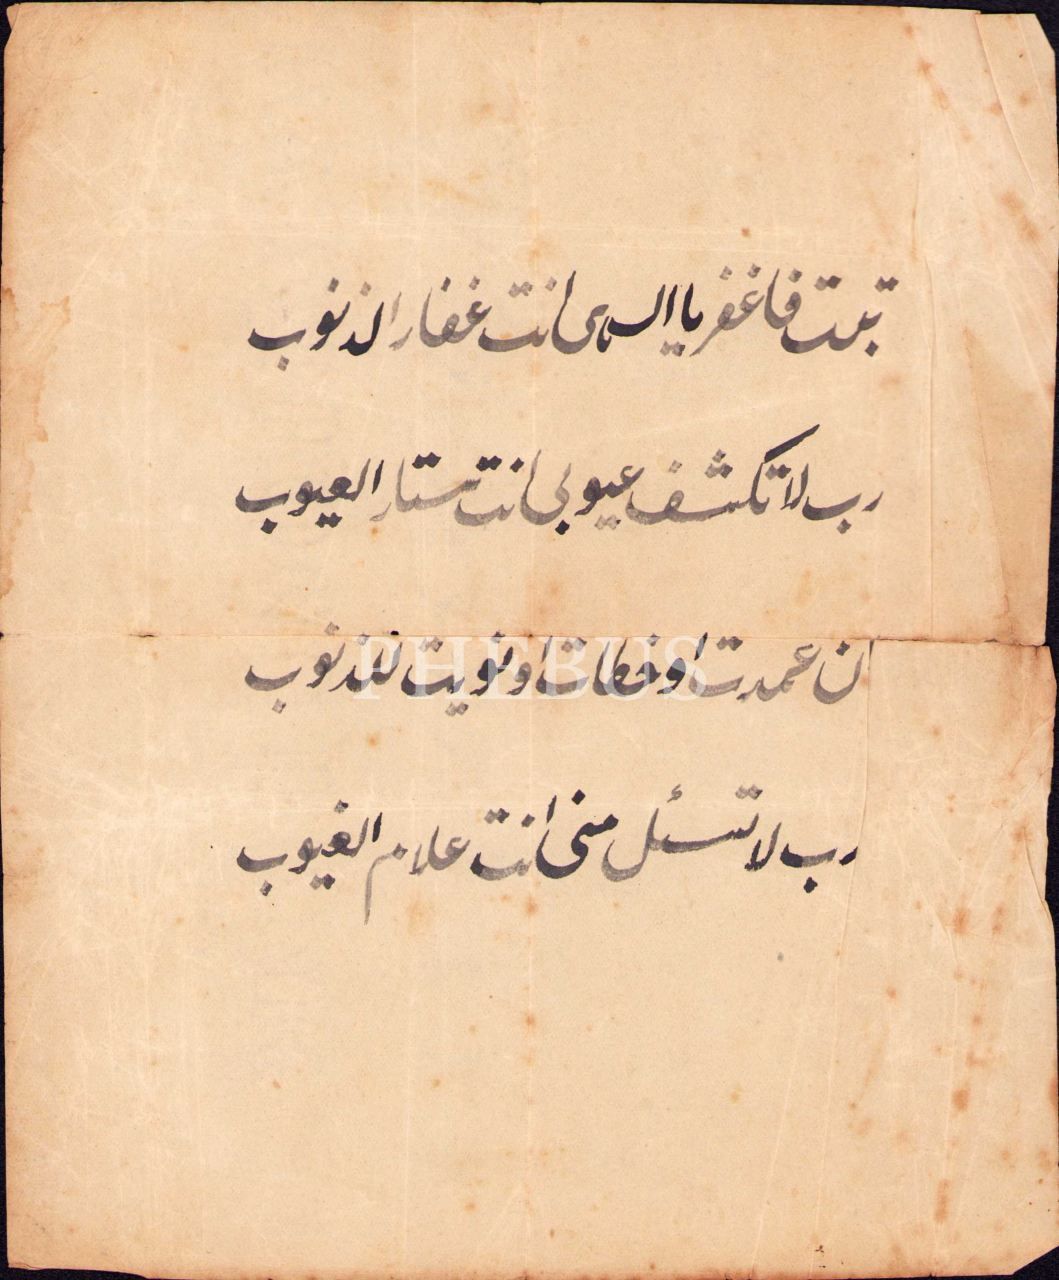 تبت فاغفر يا الهى انت غفار الذنوب
رب لا تكشف عيوبى انت ستار العيوب
ان عمدت او خطات او نويت للذنوب
رب لا تسئل منى انت علام الغيوب
PHEBUS